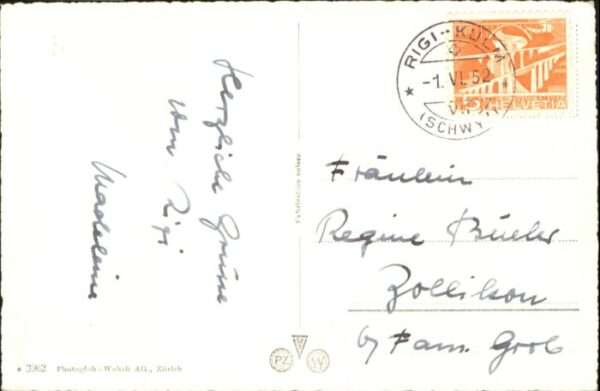 Herzliche Grüsse
vom Rigi
Madeleine
RIGI-KULM
-1. VI. 52
(SCHWYZ)
5 HELVETIA
Fräulein
Regine Bühler
Zollikon
b/ Fam. Grob
3962 Photoglob-Wehrli AG., Zürich
PZ
W